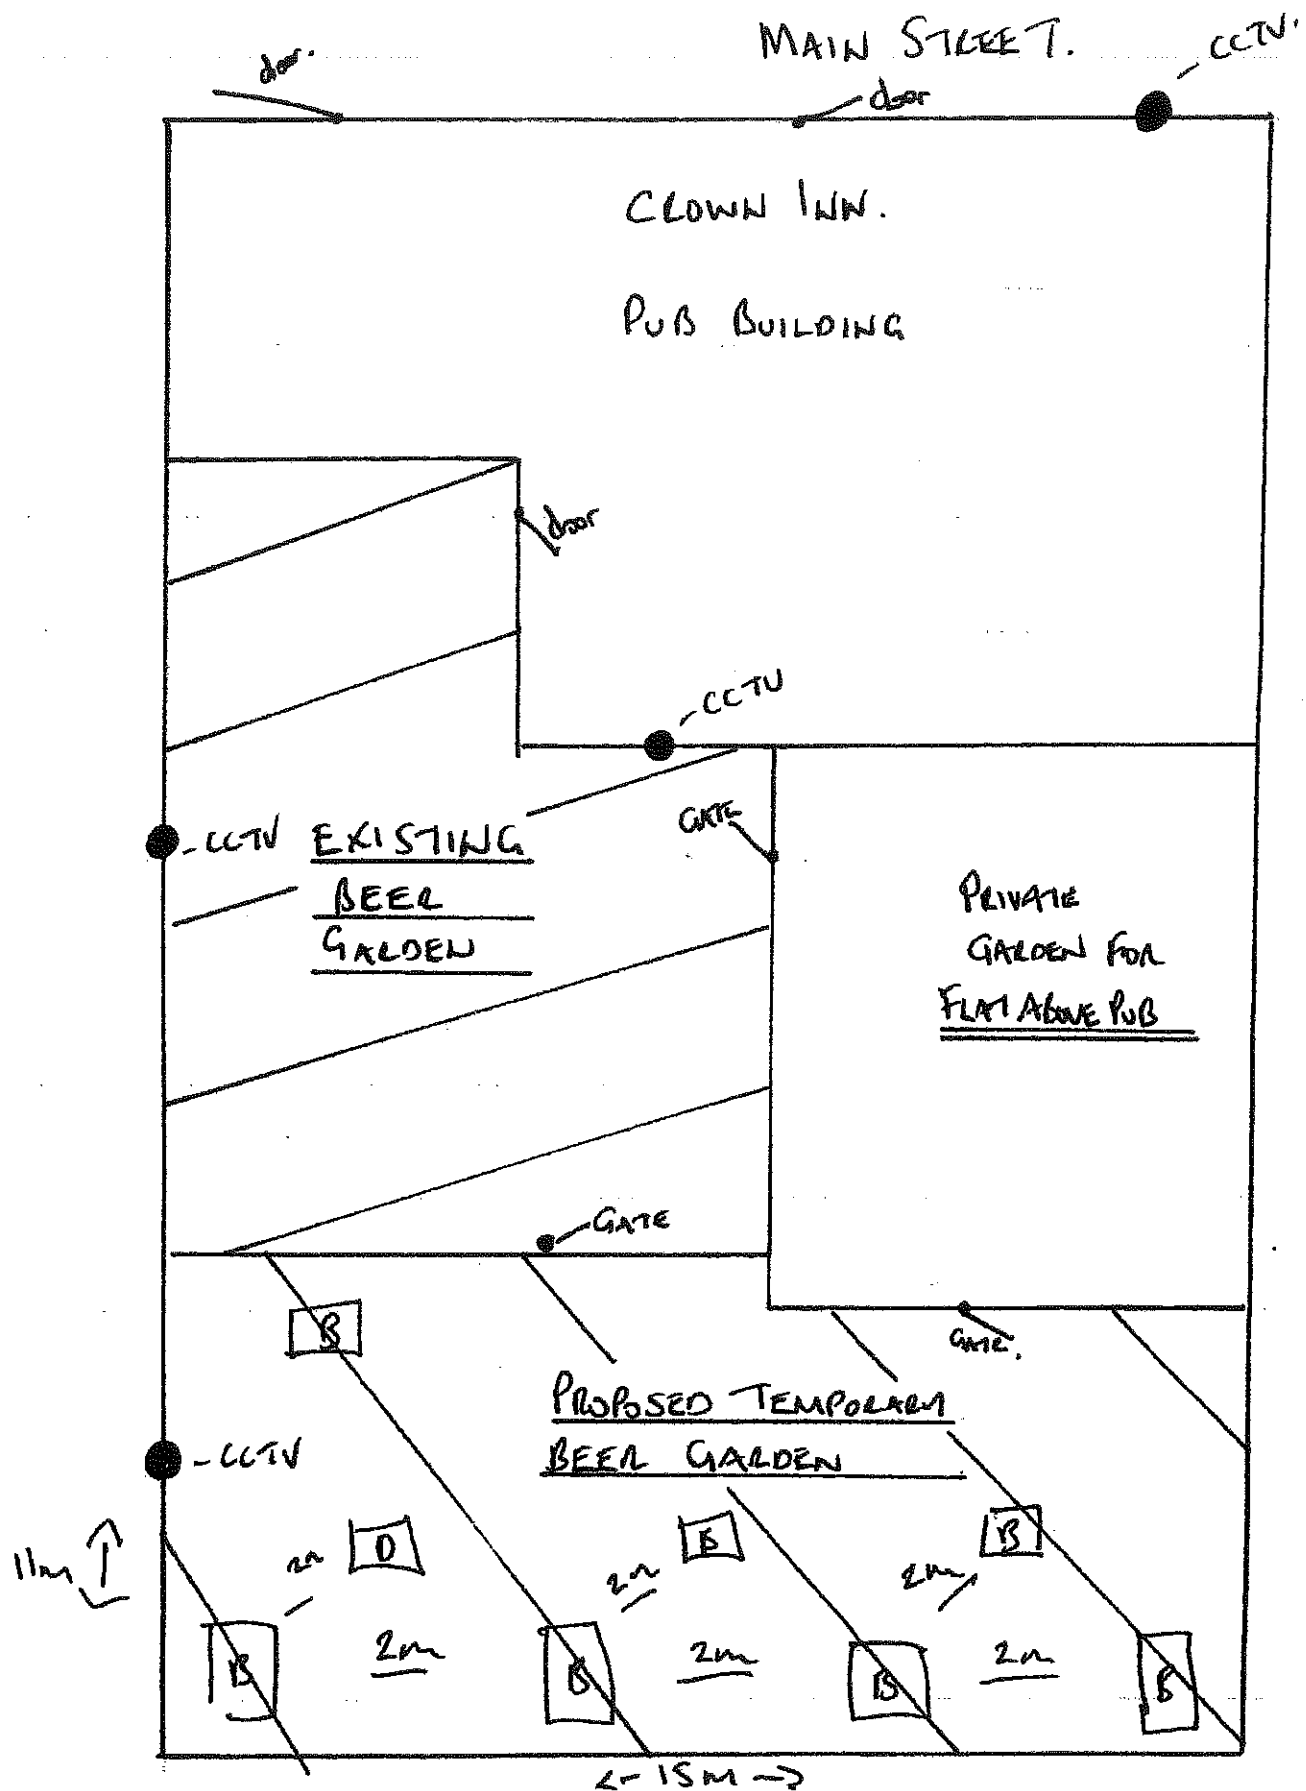 MAIN STREET.
CCTV.
door.
door
CROWN INN.
PUB BUILDING
door
CCTV
GATE
CCTV
EXISTING
BEER
GARDEN
PRIVATE
GARDEN FOR
FLAT ABOVE PUB
GATE
B
GATE.
PROPOSED TEMPORARY
BEER GARDEN
CCTV
11m
2m
D
2m
B
2m
B
B
2m
B
2m
B
2m
B
15m